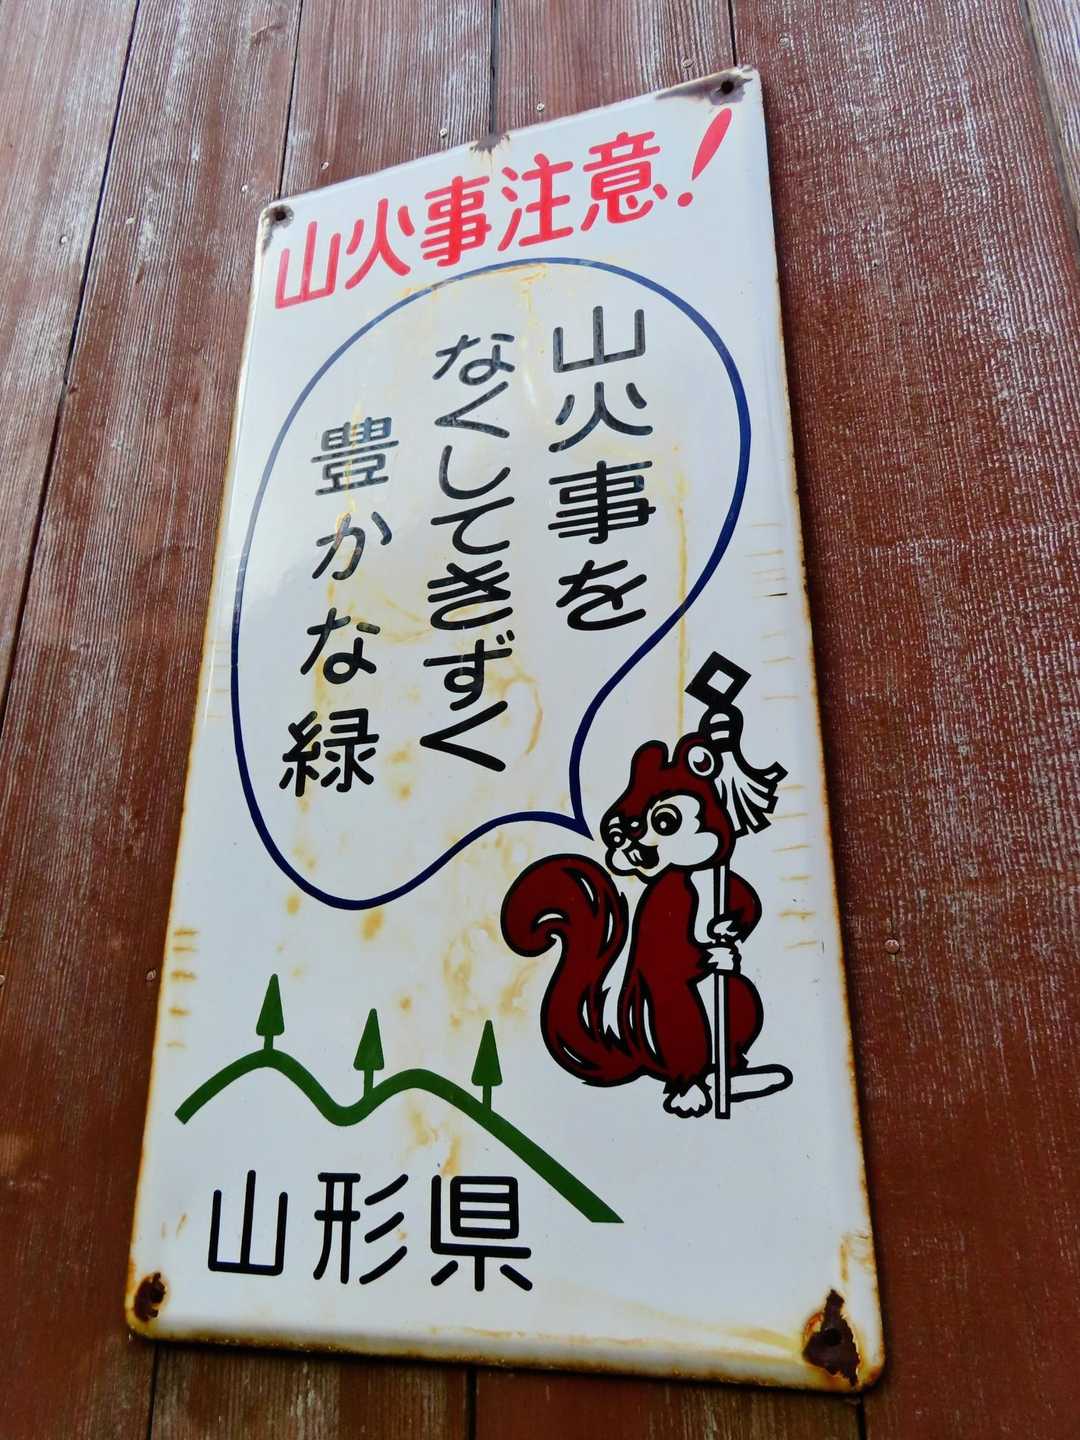 山火事注意!
山火事を
なくしてきずく
豊かな緑
山形県